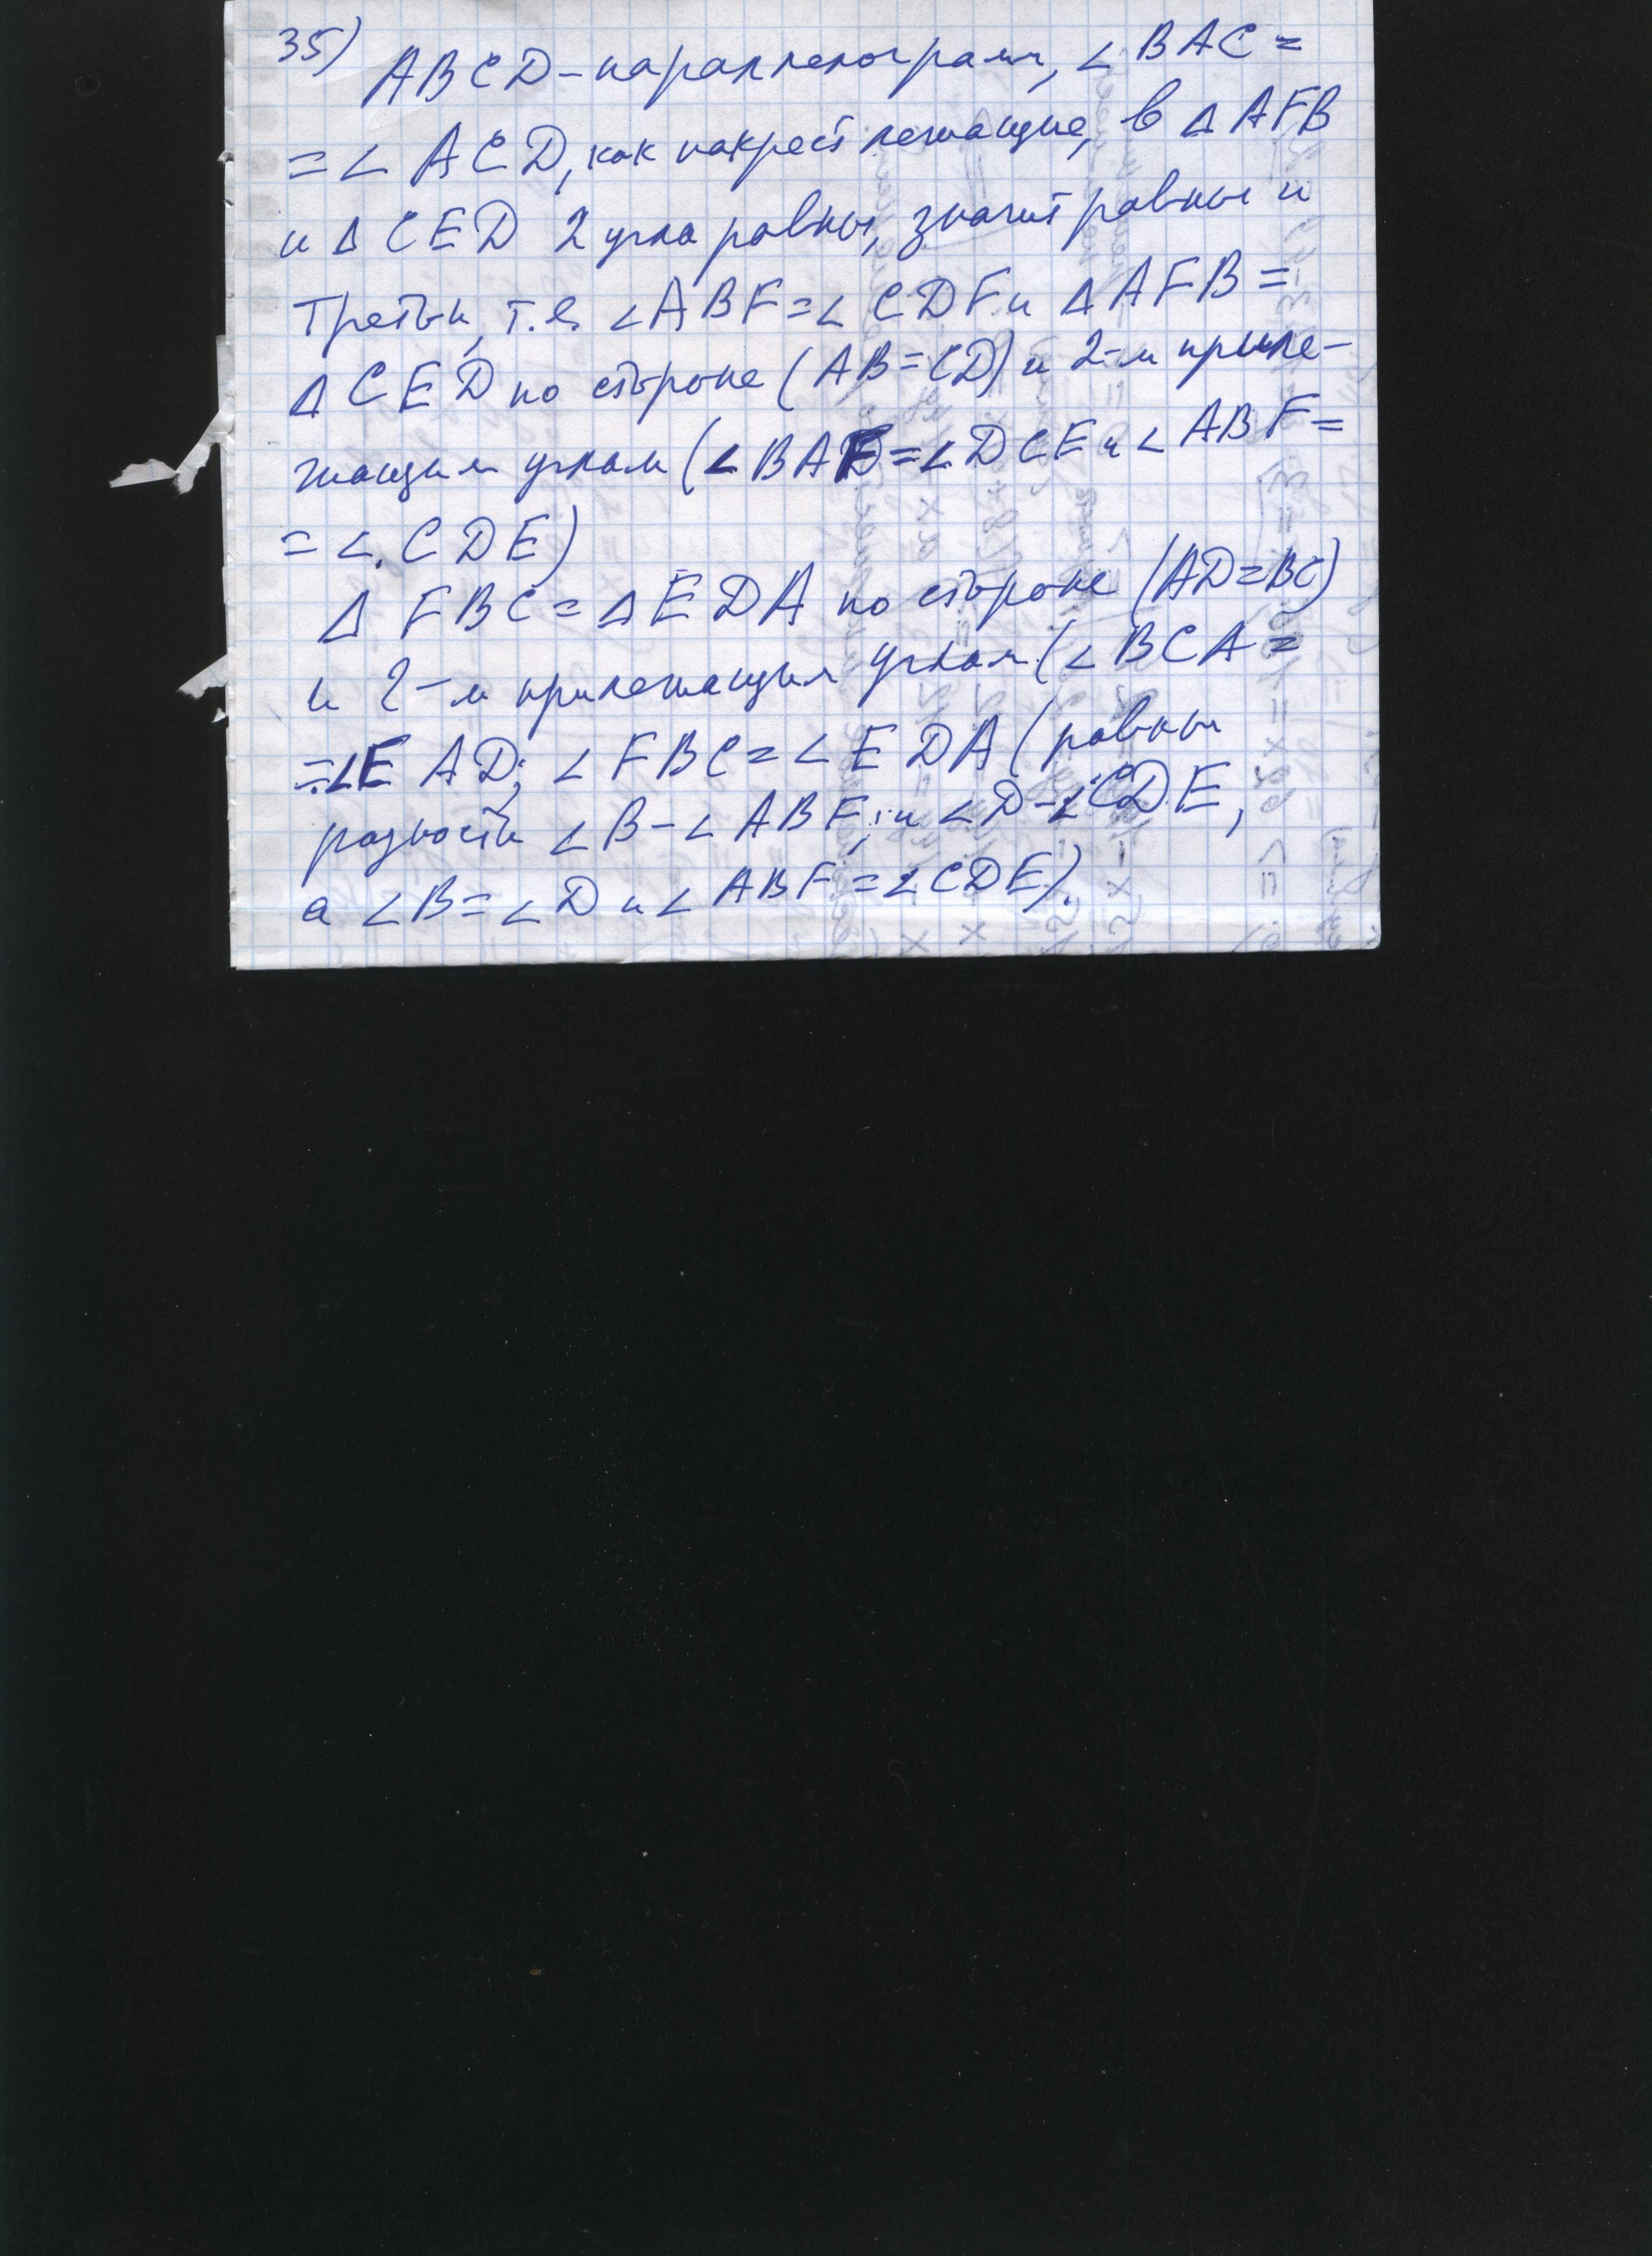 35)
ABCD - параллелограмм, ∠BAC =
= ∠ACD, как накрест лежащие, в ΔAFB
и ΔCED 2 угла равны, значит равны и
третьи, т.е. ∠ABF = ∠CDF и ΔAFB =
ΔCED по стороне (AB = CD) и 2-м приле-
жащим углам (∠BAF = ∠DCE и ∠ABF =
= ∠CDE)
ΔFBC = ΔEDA по стороне (AD = BC)
и 2-м прилежащим углам (∠BCA =
= ∠EAD; ∠FBC = ∠EDA (равны
разности ∠B - ∠ABF, и ∠D - ∠CDE,
а ∠B = ∠D и ∠ABF = ∠CDE).